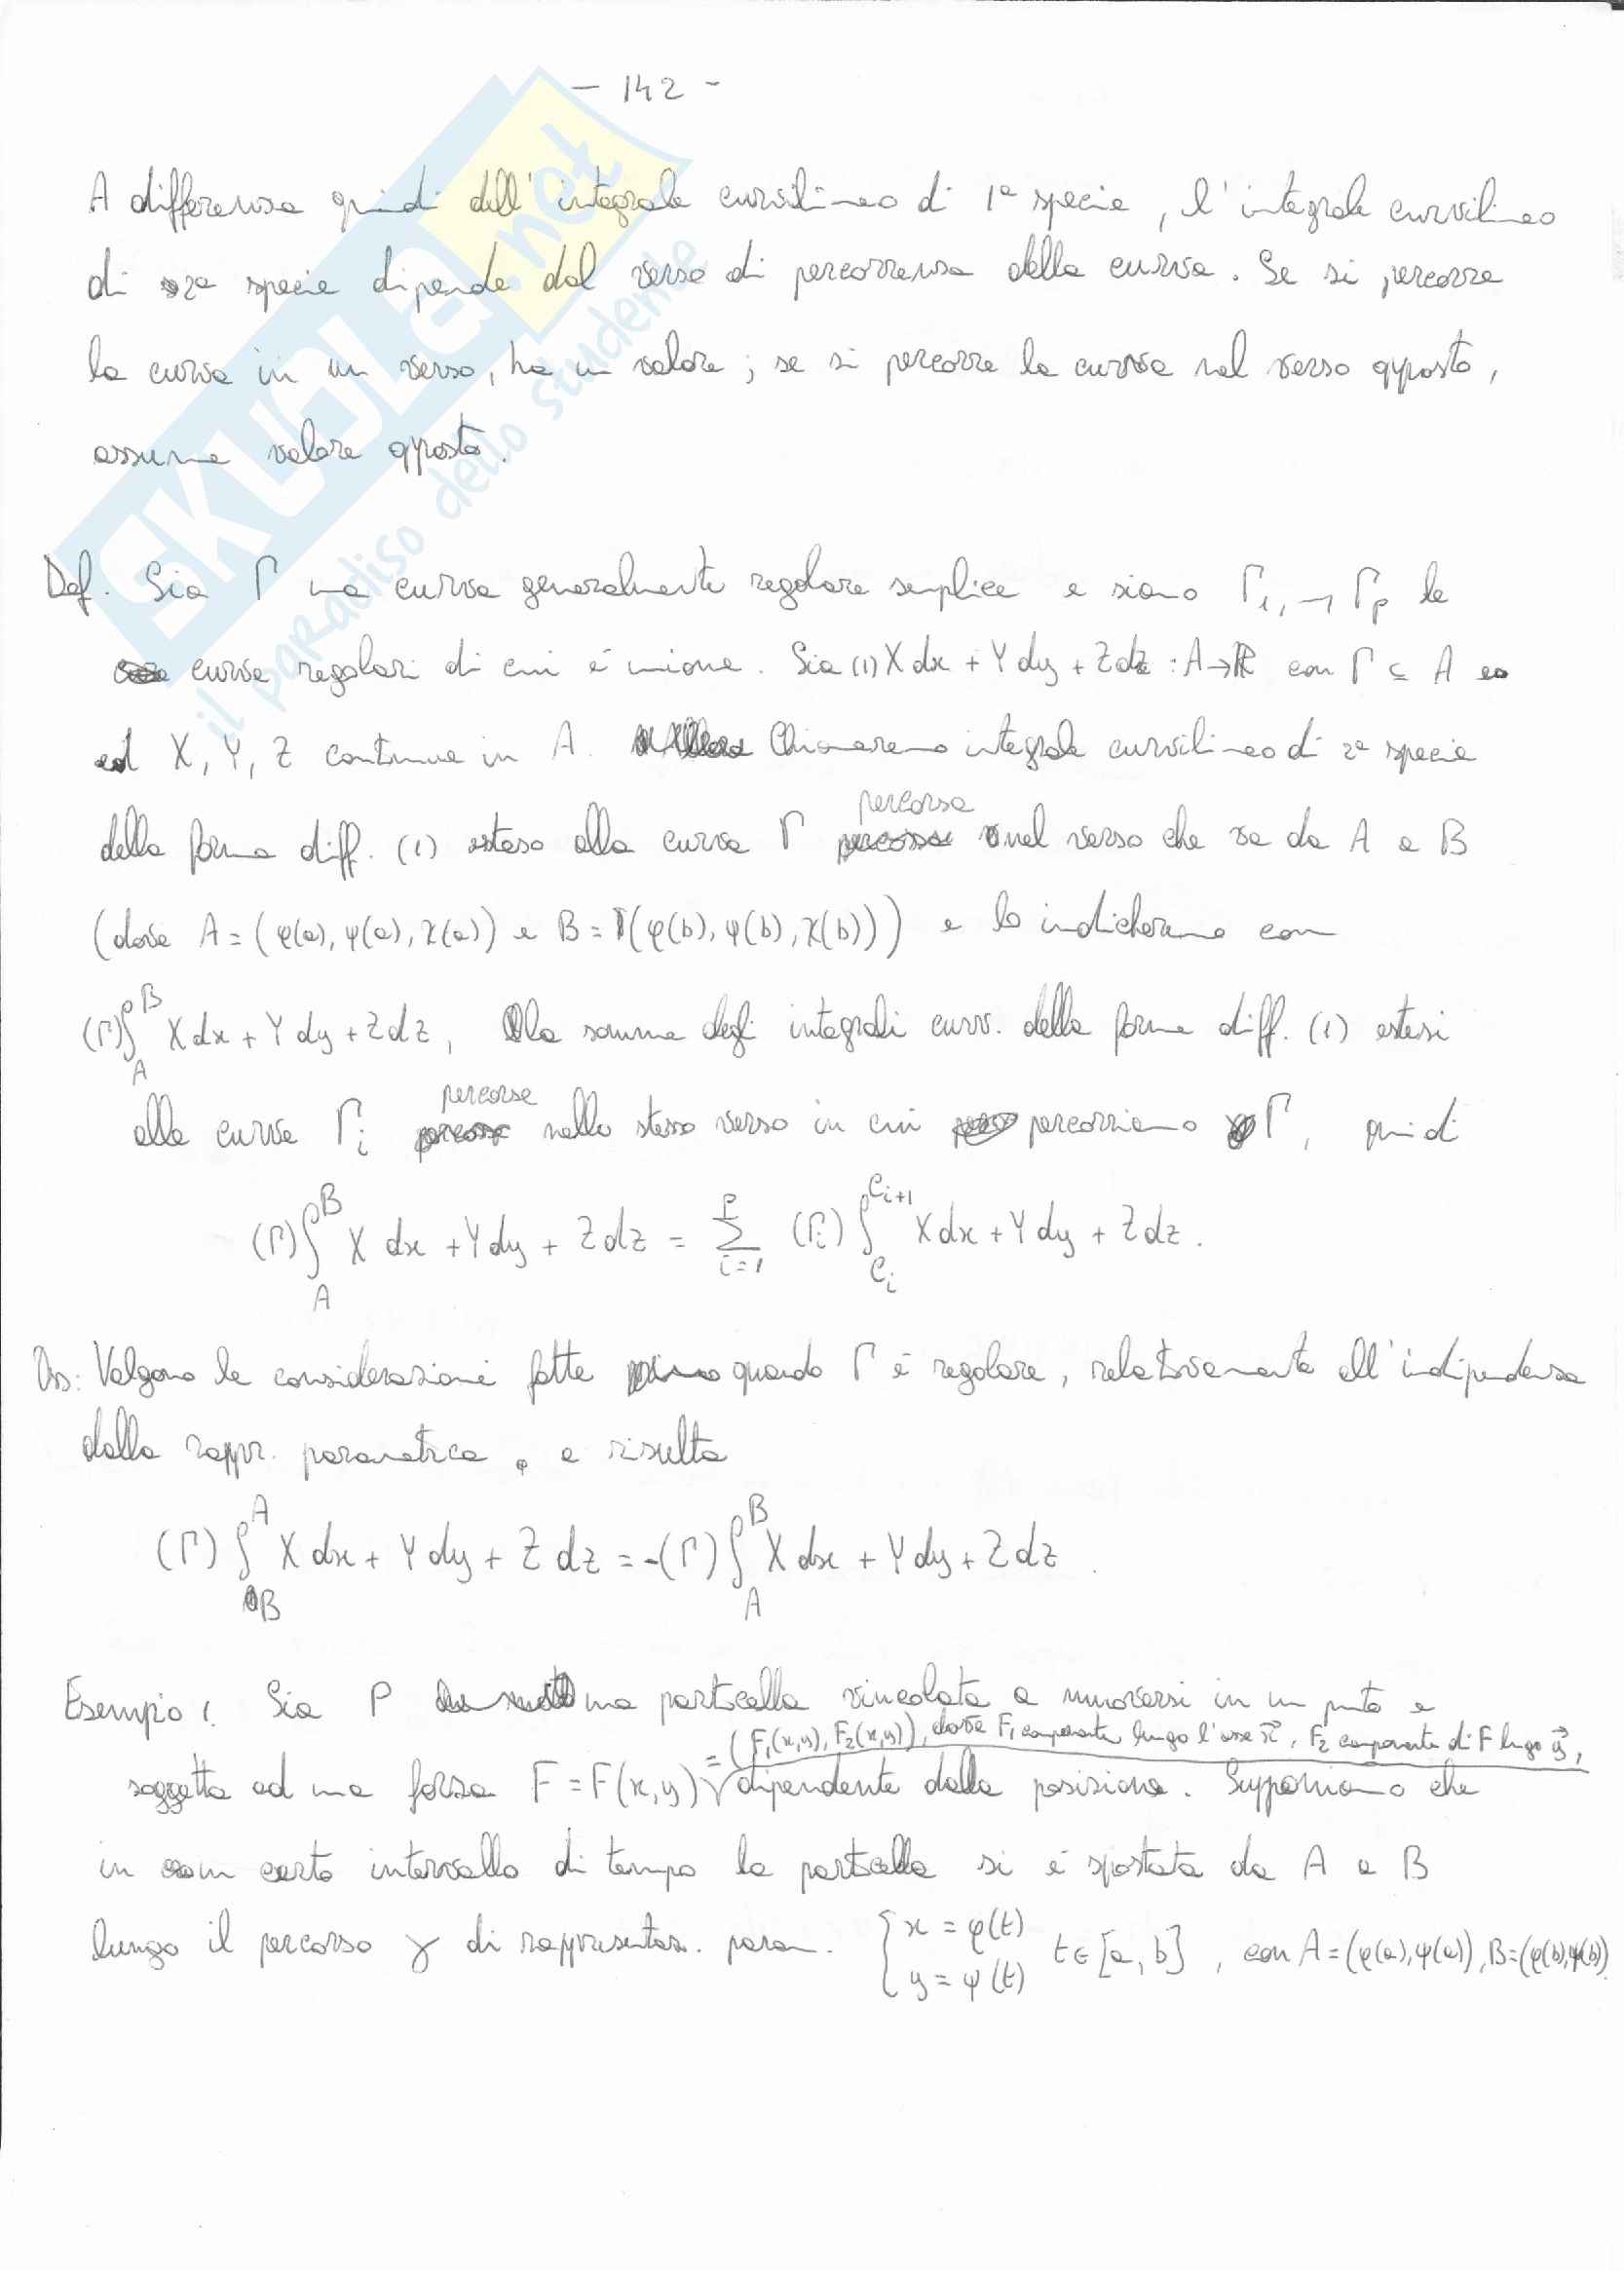 - 142 -
A differenza quindi dell'integrale curvilineo di 1ª specie, l'integrale curvilineo
di 2ª specie dipende dal verso di percorrenza della curva. Se si percorre
la curva in un verso, ha un valore; se si percorre la curva nel verso opposto,
assume valore opposto.
Def. Sia Γ una curva generalmente regolare semplice e siano Γ₁, ..., Γₚ le
curve regolari di cui è unione. Sia (1) X dx + Y dy + Z dz : A → ℝ con Γ ⊆ A
ed X, Y, Z continue in A. Chiameremo integrale curvilineo di 2ª specie
della forma diff. (1) esteso alla curva Γ percorsa nel verso che va da A a B
(dove A = (φ(a), ψ(a), χ(a)) e B = (φ(b), ψ(b), χ(b))) e lo indicheremo con
(Γ)∫_A^B X dx + Y dy + Z dz, la somma degli integrali curv. della forma diff. (1) estesi
alle curve Γᵢ percorse nello stesso verso in cui percorriamo Γ, quindi
(Γ)∫_A^B X dx + Y dy + Z dz = ∑_{i=1}^p (Γᵢ)∫_{C_i}^{C_{i+1}} X dx + Y dy + Z dz.
Oss: Valgono le considerazioni fatte quando Γ è regolare, relativamente all'indipendenza
dalla rappr. parametrica, e risulta
(Γ)∫_B^A X dx + Y dy + Z dz = -(Γ)∫_A^B X dx + Y dy + Z dz.
Esempio 1. Sia P una particella vincolata a muoversi in un punto e
soggetta ad una forza F = F(x,y) = (F₁(x,y), F₂(x,y)), dove F₁ componente lungo l'asse x⃗, F₂ componente di F lungo y⃗, dipendente dalla posizione. Supponiamo che
in un certo intervallo di tempo la particella si è spostata da A a B
lungo il percorso γ di rappresentaz. param. { x = φ(t) y = ψ(t) t ∈ [a, b], con A = (φ(a), ψ(a)), B = (φ(b), ψ(b))
SKUOLA.net
il paradiso dello studente